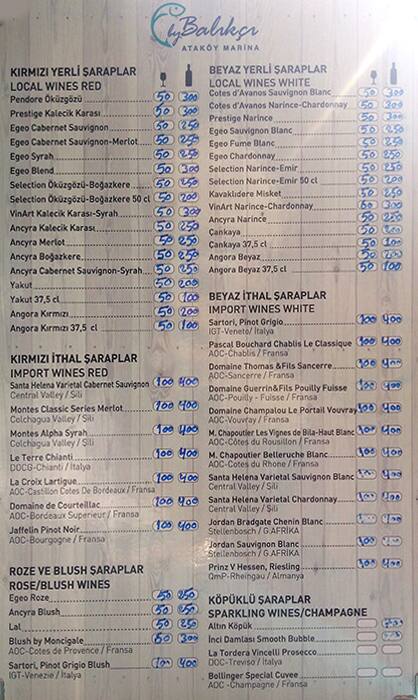 iyBalıkçı
ATAKÖY MARİNA
KIRMIZI YERLİ ŞARAPLAR
LOCAL WINES RED
Pendore Öküzgözü 50 300
Prestige Kalecik Karası 50 300
Egeo Cabernet Sauvignon 50 250
Egeo Cabernet Sauvignon-Merlot 50 250
Egeo Syrah 50 250
Egeo Blend 50 300
Selection Öküzgözü-Boğazkere 50 250
Selection Öküzgözü-Boğazkere 50 cl 50 200
VinArt Kalecik Karası-Syrah 50 300
Ancyra Kalecik Karası 50 250
Ancyra Merlot 50 250
Ancyra Boğazkere 50 250
Ancyra Cabernet Sauvignon-Syrah 50 250
Yakut 50 200
Yakut 37,5 cl 50 100
Angora Kırmızı 50 200
Angora Kırmızı 37,5 cl 50 100
KIRMIZI İTHAL ŞARAPLAR
IMPORT WINES RED
Santa Helena Varietal Cabernet Sauvignon 100 400
Central Valley / Şili
Montes Classic Series Merlot 100 400
Colchagua Valley / Şili
Montes Alpha Syrah 100 400
Colchagua Valley / Şili
Le Terre Chianti 100 400
DOCG-Chianti / İtalya
La Croix Lartigue 100 400
AOC-Castillon Cotes De Bordeaux / Fransa
Domaine de Courteillac 100 400
AOC-Bordeaux Superieur / Fransa
Jaffelin Pinot Noir 100 400
AOC-Bourgogne / Fransa
ROZE VE BLUSH ŞARAPLAR
ROSE/BLUSH WINES
Egeo Roze 50 250
Ancyra Blush 50 250
Lal 50 250
Blush by Moncigale 50 300
AOC-Cotes de Provence / Fransa
Sartori, Pinot Grigio Blush 100 400
IGT-Venezie / İtalya
BEYAZ YERLİ ŞARAPLAR
LOCAL WINES WHITE
Cotes d'Avanos Sauvignon Blanc 50 300
Cotes d'Avanos Narince-Chardonnay 50 300
Prestige Narince 50 300
Egeo Sauvignon Blanc 50 250
Egeo Fume Blanc 50 250
Egeo Chardonnay 50 250
Selection Narince-Emir 50 250
Selection Narince-Emir 50 cl 50 200
Kavaklıdere Misket 50 250
VinArt Narince-Chardonnay 300
Ancyra Narince 50 250
Çankaya 50 200
Çankaya 37,5 cl 50 100
Angora Beyaz 50 200
Angora Beyaz 37,5 cl 50 100
BEYAZ İTHAL ŞARAPLAR
IMPORT WINES WHITE
Sartori, Pinot Grigio 100 400
IGT-Veneto/ İtalya
Pascal Bouchard Chablis Le Classique 100 400
AOC-Chablis / Fransa
Domaine Thomas &Fils Sancerre 100 400
AOC-Sancerre / Fransa
Domaine Guerrin&Fils Pouilly Fuisse 100 400
AOC-Pouilly - Fuisse / Fransa
Domaine Champalou Le Portail Vouvray 100 400
AOC-Vouvray / Fransa
M. Chapoutier Les Vignes de Bila-Haut Blanc 100 400
AOC-Côtes du Rousillon / Fransa
M. Chapoutier Belleruche Blanc 100 400
AOC-Cotes du Rhone / Fransa
Santa Helena Varietal Sauvignon Blanc 400
Central Valley / Şili
Santa Helena Varietal Chardonnay 400
Central Valley / Şili
Jordan Bradgate Chenin Blanc
Stellenbosch / G.AFRİKA
Jordan Sauvignon Blanc 100 400
Stellenbosch / G.AFRİKA
Prinz V Hessen, Riesling 100 400
QmP-Rheingau / Almanya
KÖPÜKLÜ ŞARAPLAR
SPARKLING WINES/CHAMPAGNE
Altın Köpük
İnci Damlası Smooth Bubble
La Tordera Vincelli Prosecco
DOC-Treviso / İtalya
Bollinger Special Cuvee
AOC -Champagne / Fransa